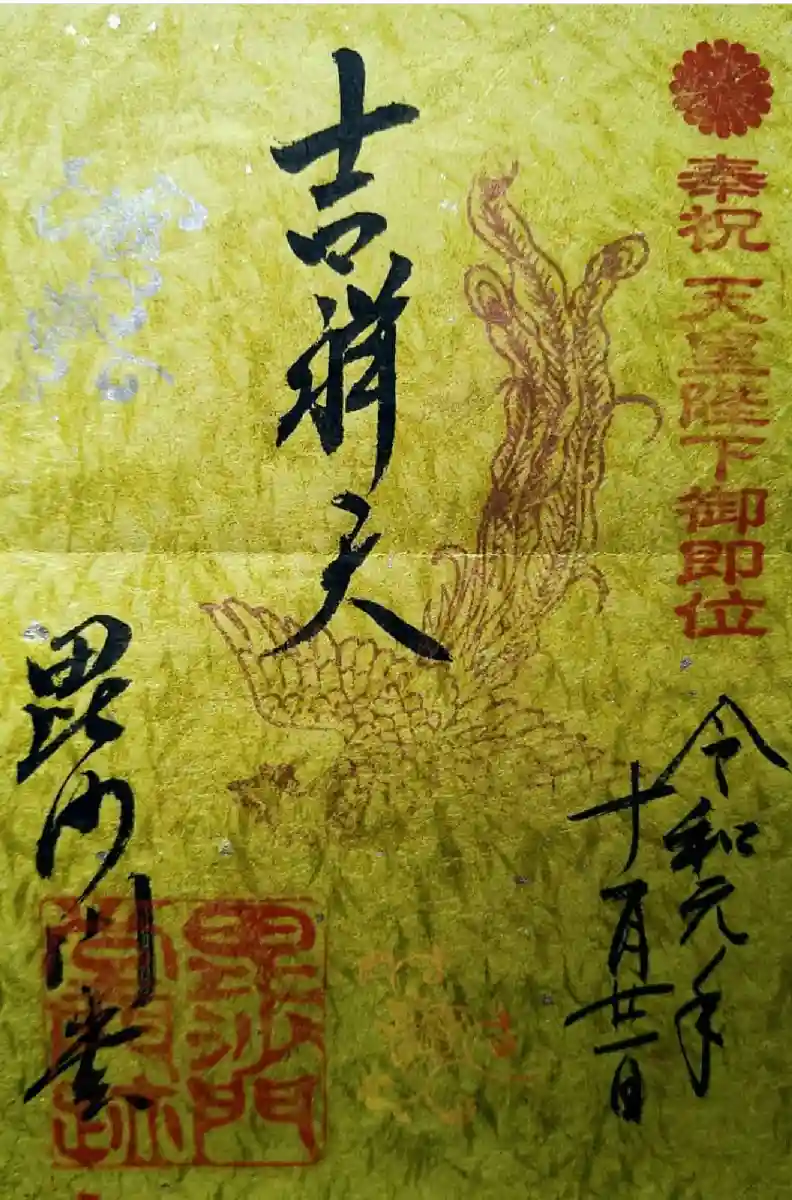 奉祝 天皇陛下御即位
令和元年
十月廿一日
吉祥天
毘沙門堂
毘沙門
堂門跡